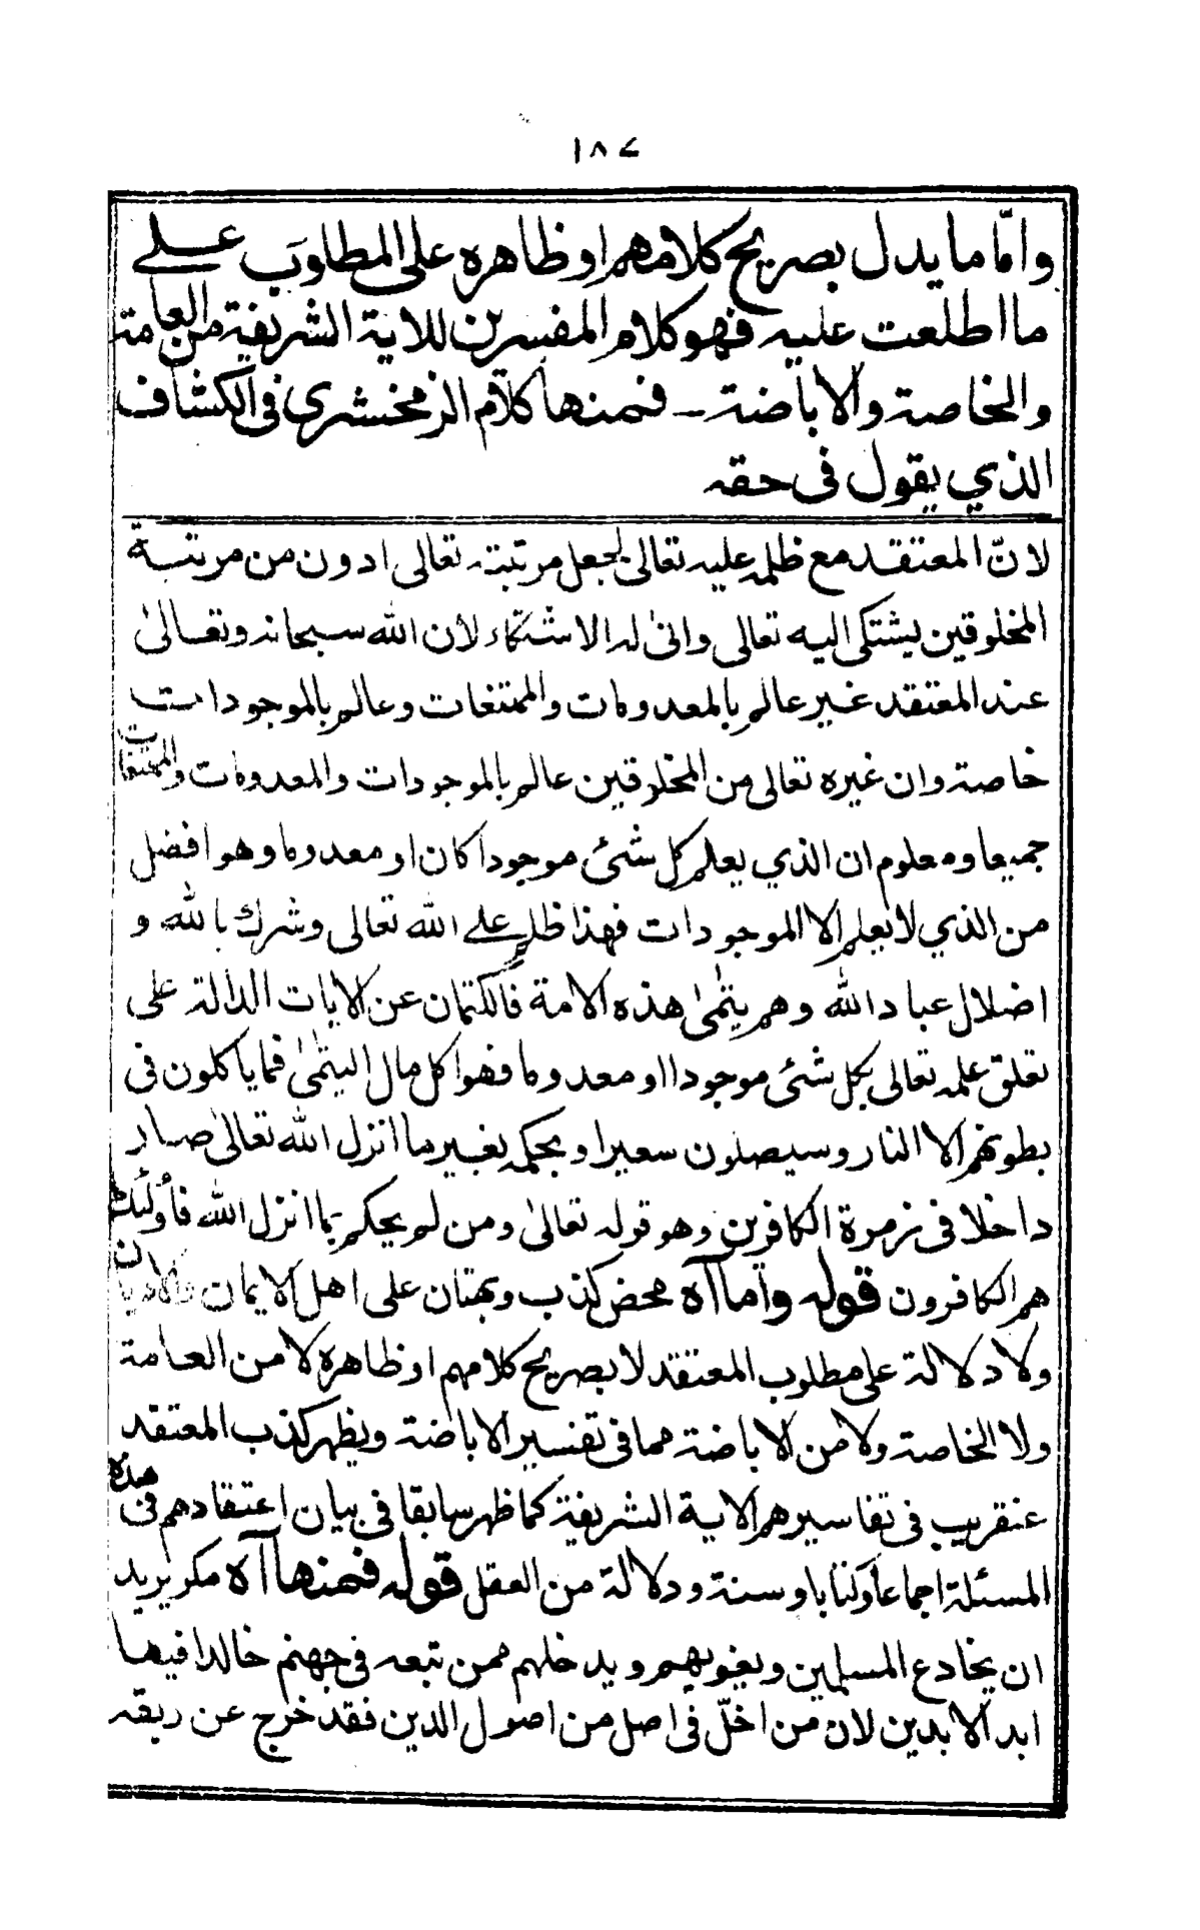 ١٨٧
وامّا ما يدل بصريح كلامهم او ظاهره على المطلوب علے
ما اطلعت عليه فهو كلام المفسرين للاية الشريفة من العامة
والخاصة والاباضة ــ فمنها كلام الزمخشري فى الكشاف
الذي يقول فى حقه
لانّ المعتقد مع ظلمه عليه تعالى لجعل مرتبته تعالى ادون من مرتبة
المخلوقين يشتكى اليه تعالى وانىٰ له الاشتكاء لان الله سبحانه وتعالىٰ
عند المعتقد غير عالم بالمعدومات والممتنعات وعالم بالموجودات
خاصة وان غيره تعالى من المخلوقين عالم بالموجودات والمعدومات والممتنعات
جميعا ومعلوم ان الذي يعلم كل شئ موجودا كان او معدوما وهو افضل
من الذي لا يعلم الا الموجودات فهذا ظلم علے الله تعالى وشرك بالله و
اضلال عباد الله وهم يتمىٰ هذه الامة فالكتمان عن الايات الدالة على
تعلق علمه تعالى بكل شئ موجودا او معدوما فهو اكل مال اليتمىٰ فما ياكلون فى
بطونهم الا النار وسيصلون سعيرا وبحكمه بغير ما انزل الله تعالىٰ صار
داخلا فى زمرة الكافرين وهو قوله تعالىٰ ومن لم يحكم بما انزل الله فأولئك
هم الكافرون قوله واما آه محض كذب وبهتان على اهل الايمان والاديان
ولا دلالة على مطلوب المعتقد لا بصريح كلامهم او ظاهره لا من العامة
ولا الخاصة ولا من الاباضة مما فى تفسير الاباضة ويظهر كذب المعتقد
عنقريب فى تفاسيرهم الاية الشريفة كما ظهر سابقا فى بيان اعتقادهم فى هذه
المسئلة اجماعا وكتابا وسنة ودلالة من العقل قوله فمنها آه مكر يريد
ان يخادع المسلمين ويغويهم ويدخلهم ممن تبعه فى جهنم خالدا فيها
ابد الابدين لان من اخلّ فى اصل من اصول الدين فقد خرج عن ربقة